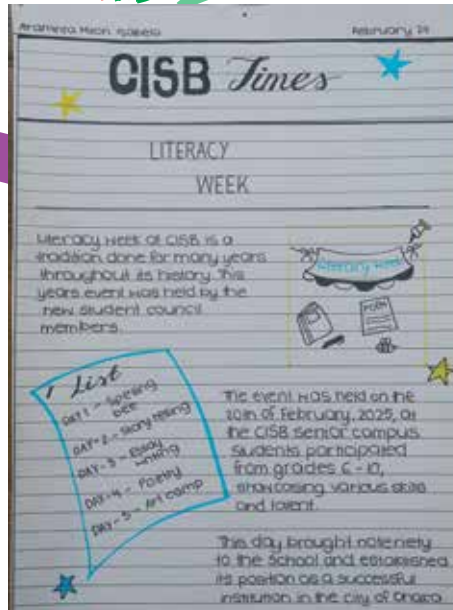 February 24
CISB Times
LITERACY
WEEK
Literacy week of CISB is a
tradition done for many years
throughout its history. This
years event was held by the
new student council
members.
Literacy Week
POEM
List
DAY 1 - Spelling
bee
DAY-2 - Story telling
DAY-3 - Essay
writing
DAY-4 - Poetry
DAY-5 - Art camp
The event was held on the
20th of February, 2025, at
the CISB senior campus.
Students participated
from grades 6-10,
showcasing various skills
and talent.
This day brought noteriety
to the School and established
its position as a successful
institution in the city of Dhaka